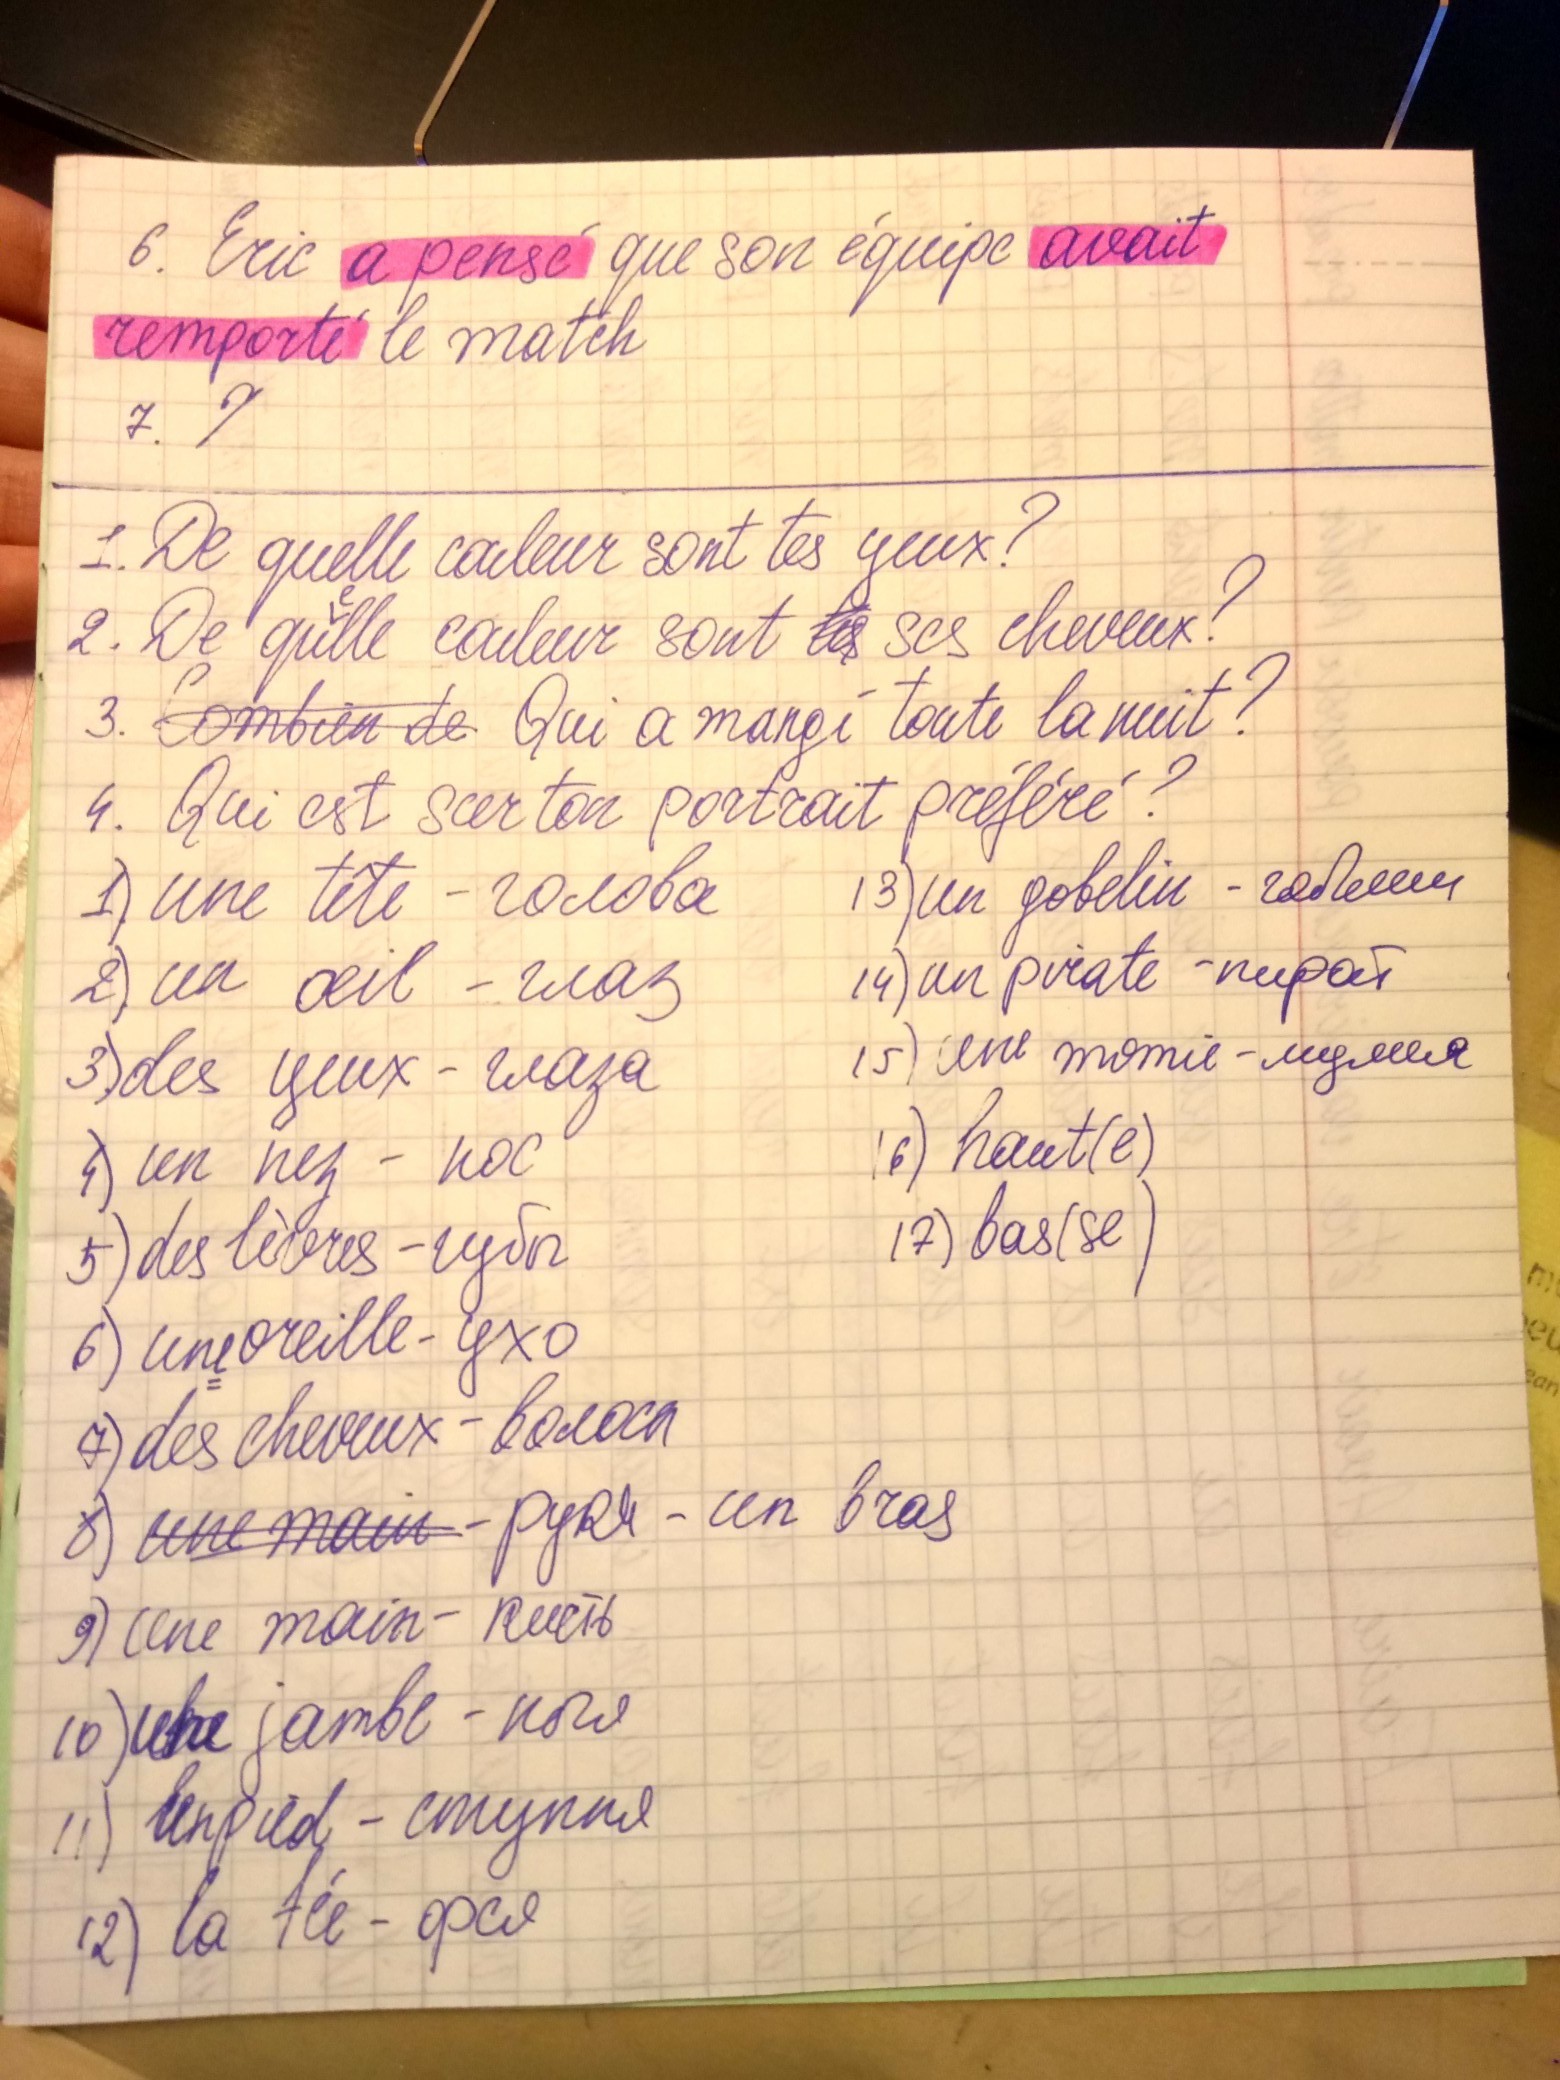 6. Eric a pensé que son équipe avait
remporté le match
7. ?
1. De quelle couleur sont tes yeux?
2. De quelle couleur sont ses cheveux?
3. Combien de Qui a mangé toute la nuit?
4. Qui est sur ton portrait préféré?
1) une tête - голова
2) un œil - глаз
3) des yeux - глаза
4) un nez - нос
5) des lèvres - губы
6) une oreille - ухо
7) des cheveux - волосы
8) une main - рука - un bras
9) une main - кисть
10) une jambe - нога
11) un pied - ступня
12) la fée - фея
13) un gobelin - гоблин
14) un pirate - пират
15) une momie - мумия
16) haut(e)
17) bas(se)